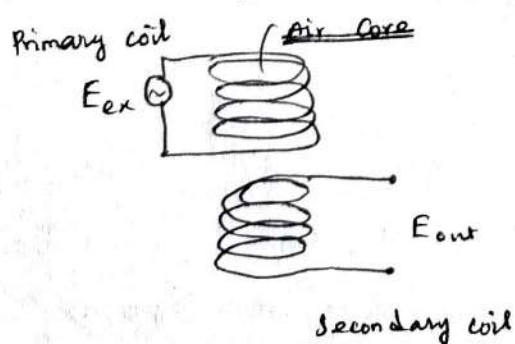 Primary coil
Air Core
E ex
E out
Secondary coil